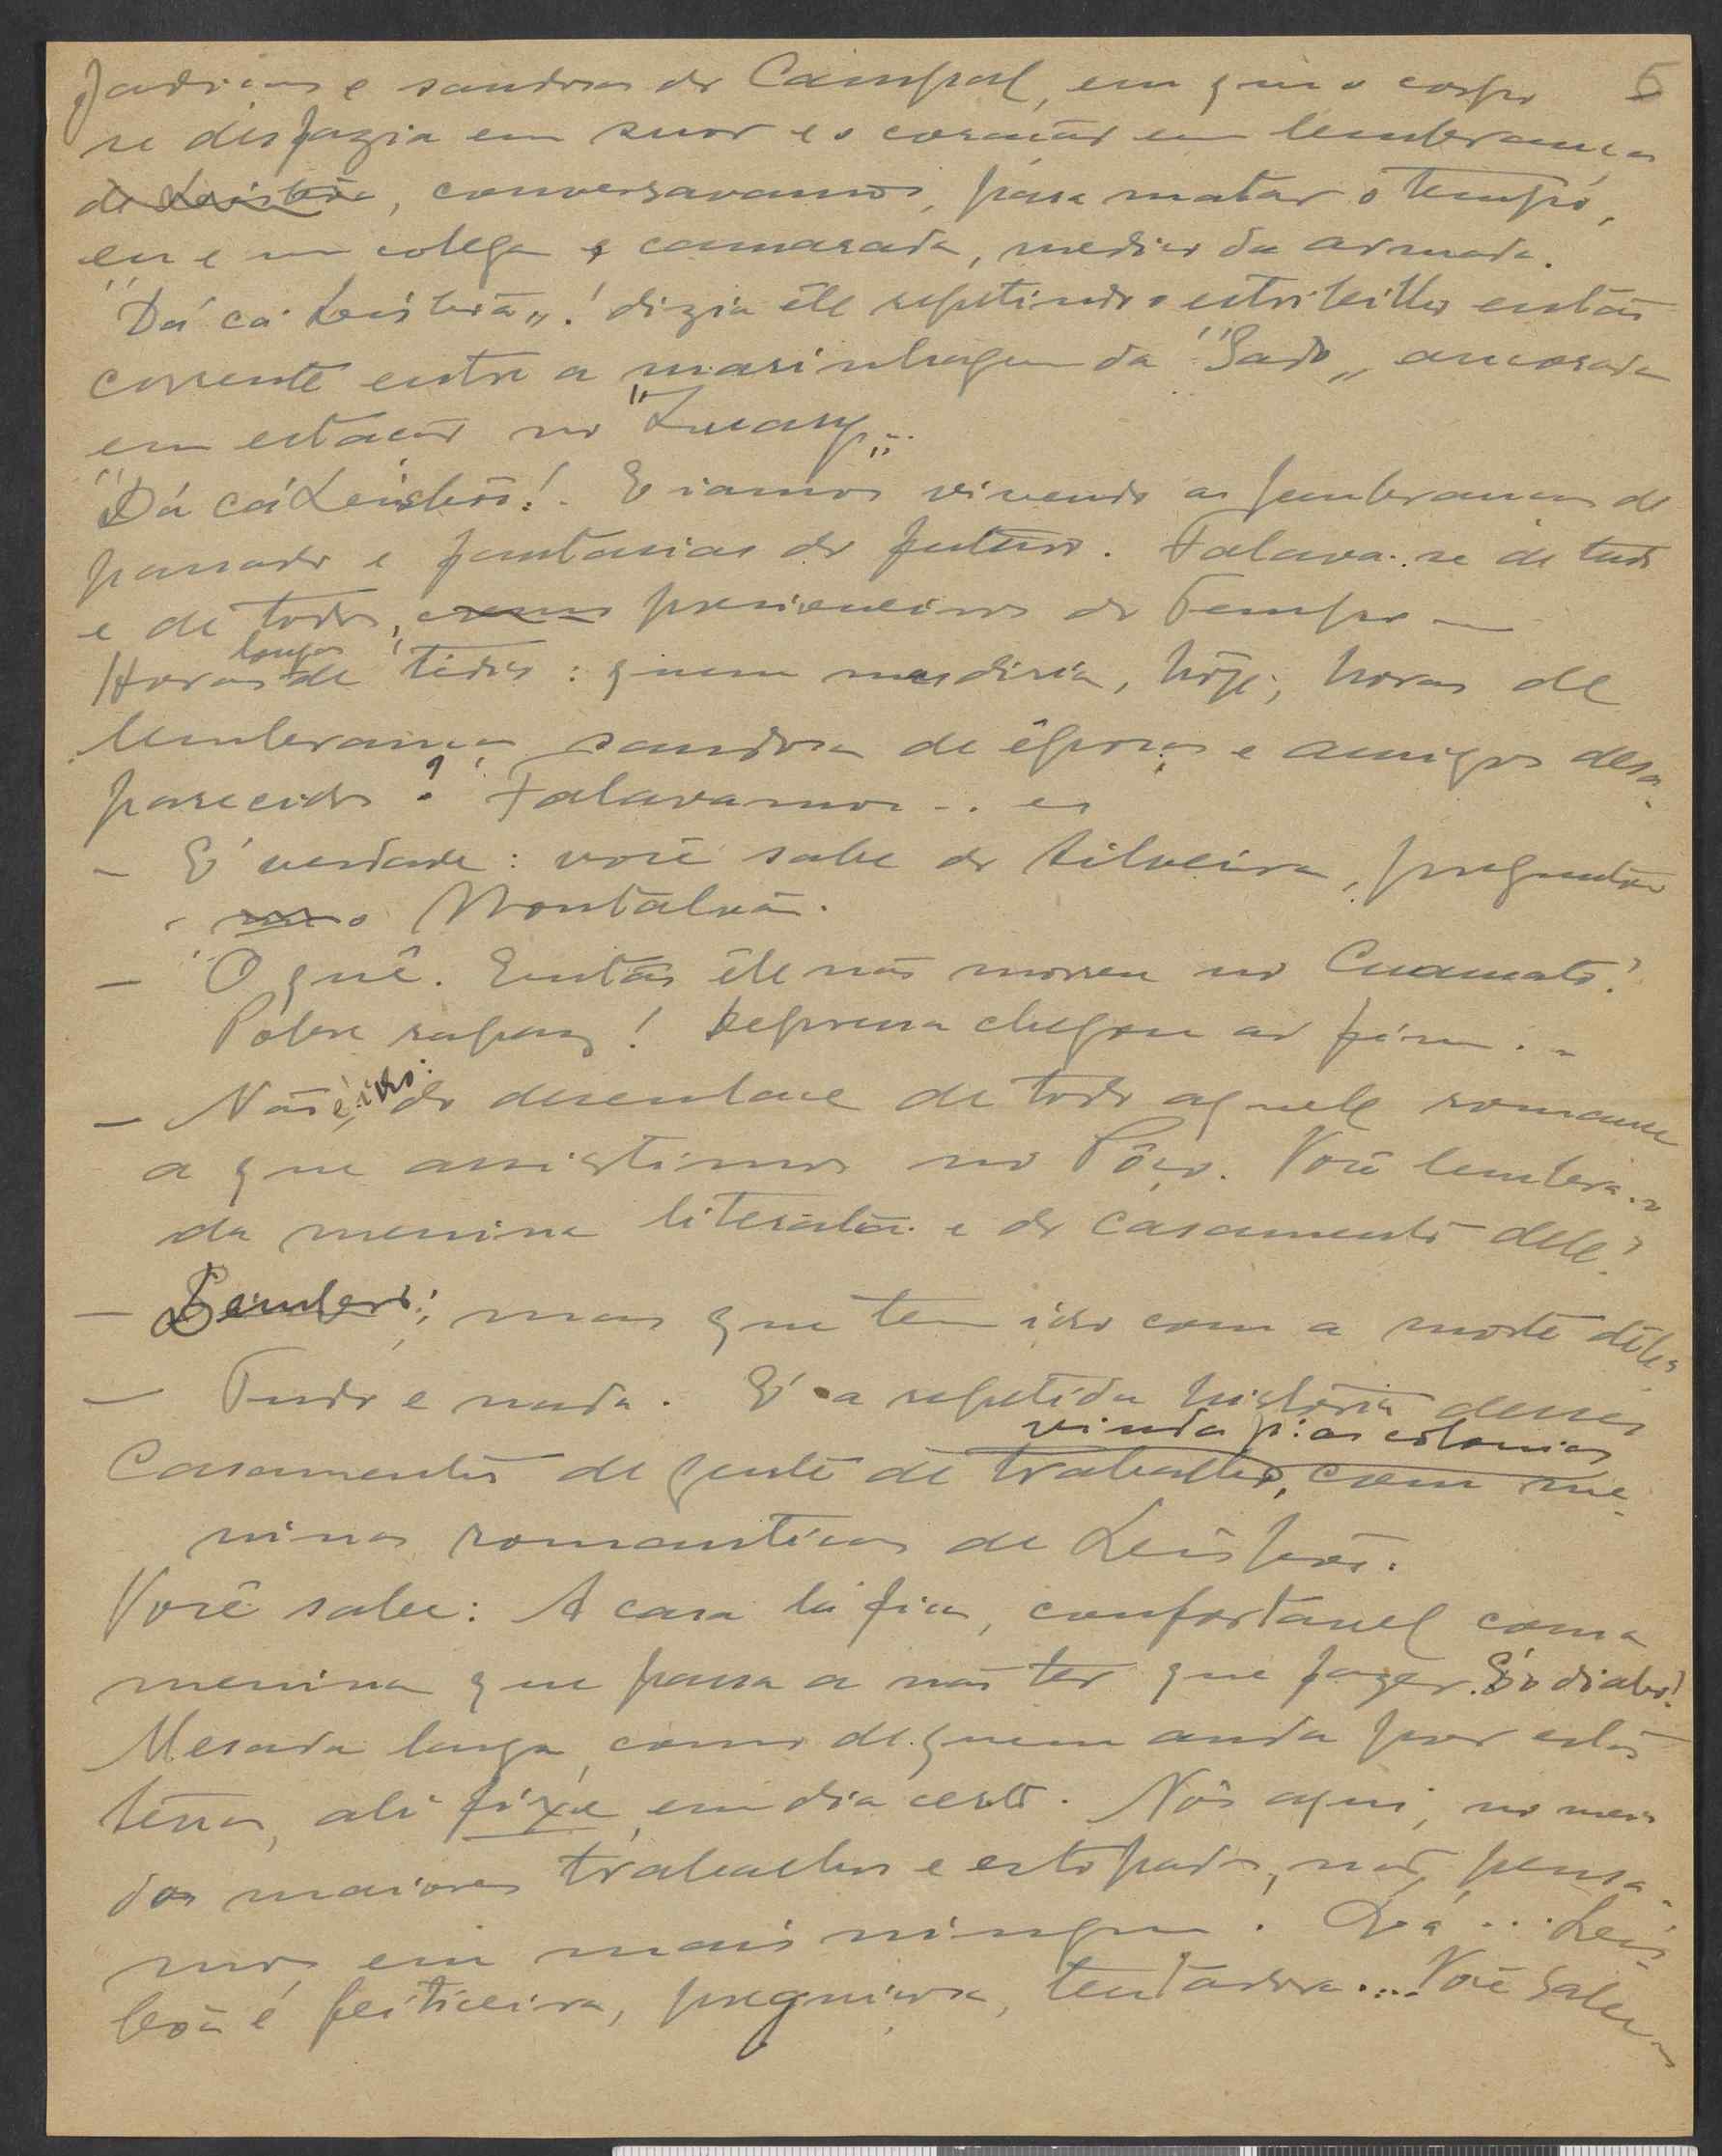 e saudosas do Campal, em que o corpo 5
se desfazia em suor e o coração em lembranças
de Leisbôa, conversavamos, para matar o tempo,
eu e um colega e camarada, medico da armada.
"Dá cá Leisbôa„! dizia êle repetindo o estribilho então
corrente entre a marinhagem da "Sado„ ancorada
em estação no
"Dá cá Leisbôa!. E iamos vivendo as lembranças do
passado e fantasias do futuro. Falava-se de tudo
e de todos, prisioneiros do Tempo —
Horas longas de tédio: quem me diria, hoje, horas de
lembrança saudosa de épocas e amigos desa-
parecidos? Falavamos...
— E' verdade: você sabe do Silveira, preguntou
o Montalvão.
— O quê. Então êle não morreu no Cuamato?
Pobre rapaz! Depressa chegou ao fim..
— Não é isso. do desenlace de todo aquele romance
a que assistimos no Pôço. Você lembra-se
da menina literata e do casamento dele?
— Lembro; mas que tem isso com a morte dêle?
— Tudo e nada. E' a repetida história desses
vinda p:ª as colonias
casamentos de gente de trabalho, com me-
ninas romanticas de Leisbôa.
Você sabe: A casa lá fica, confortavel com a
menina que passa a não ter que fazer. E' o diabo!
Mesada larga, como de quem anda por estas
terras, ali fixe, em dia certo. Nós aqui, no meio
dos maiores trabalhos e estopadas, não pensa-
mos em mais ninguem. Lá... Leis-
bôa é feiticeira, preguiçosa, tentadora... Você sabe